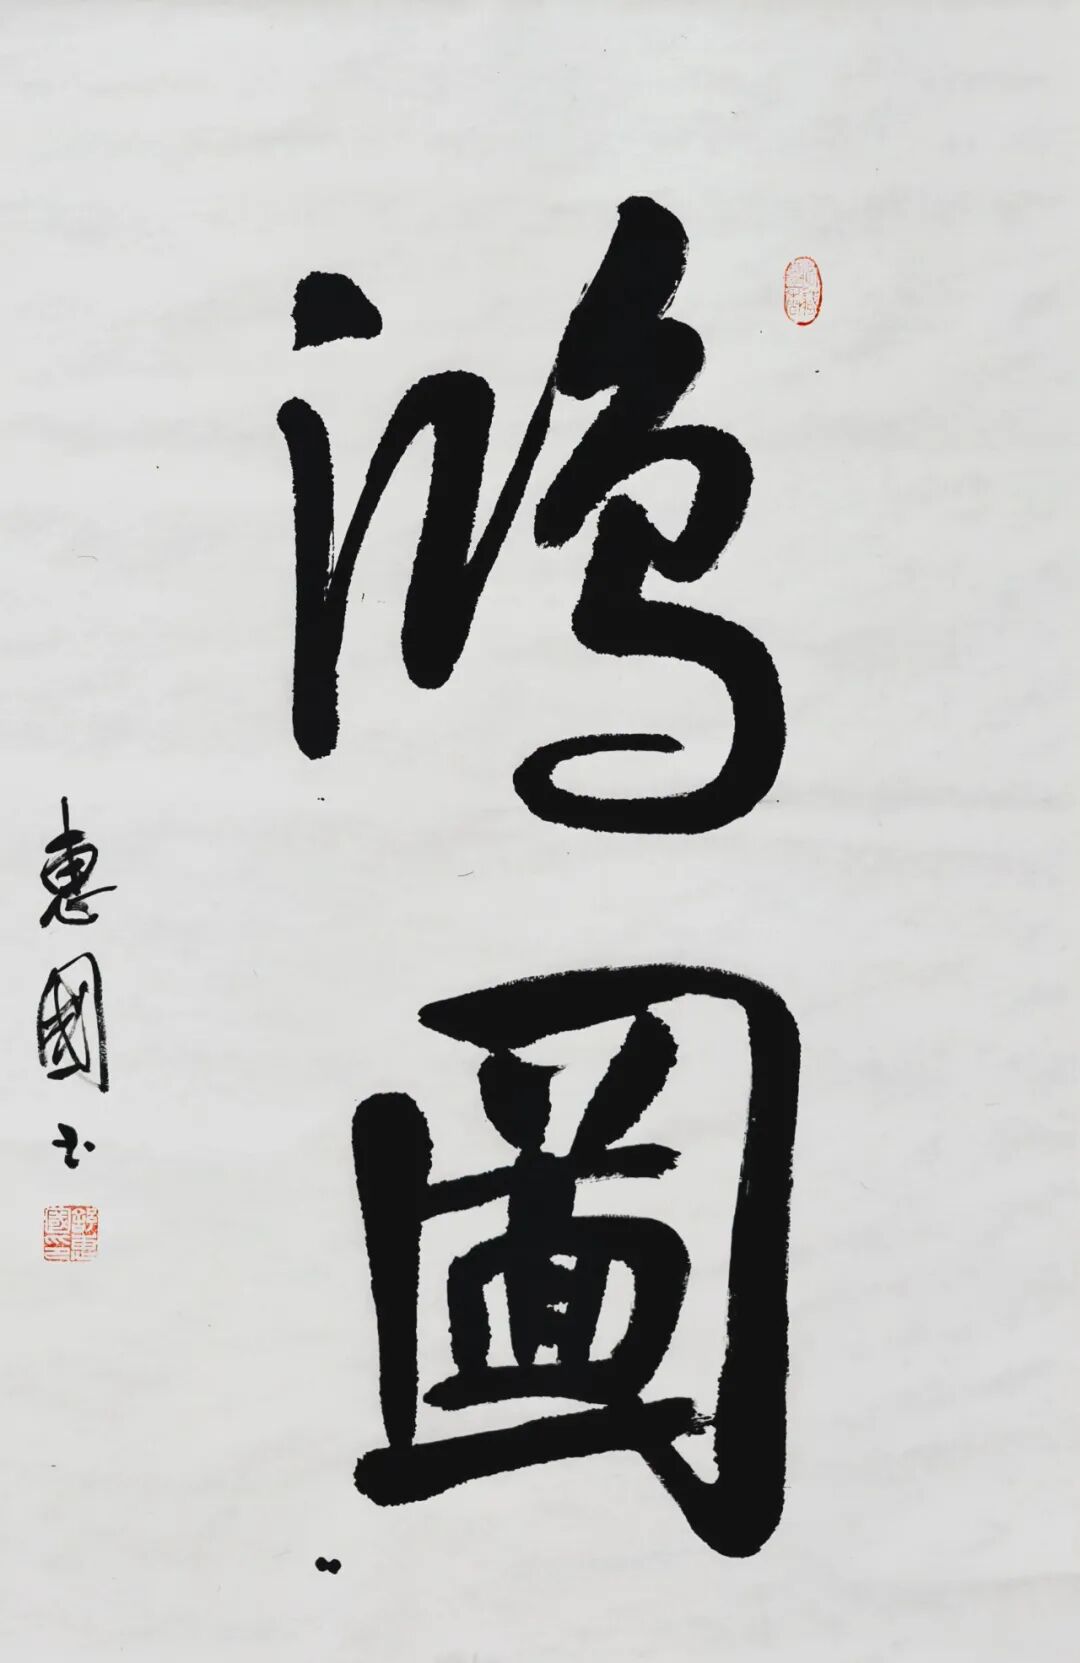 鴻圖
惠國书